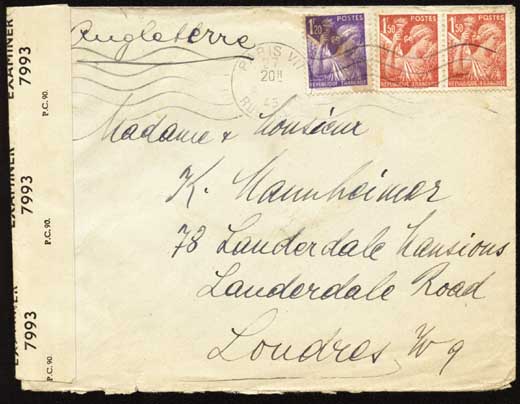 Angleterre
PARIS VII
27
20H
45
RU
1.20 POSTES
RÉPUBLIQUE FRANÇAISE
1.50 POSTES
RÉPUBLIQUE FRANÇAISE
1.50 POSTES
RÉPUBLIQUE FRANÇAISE
Madame & Monsieur
K. Mannheimer
78 Lauderdale Mansions
Lauderdale Road
Londres W9
EXAMINER 7993
P.C. 90.
EXAMINER 7993
P.C. 90.
EXAMINER 7993
P.C. 90.